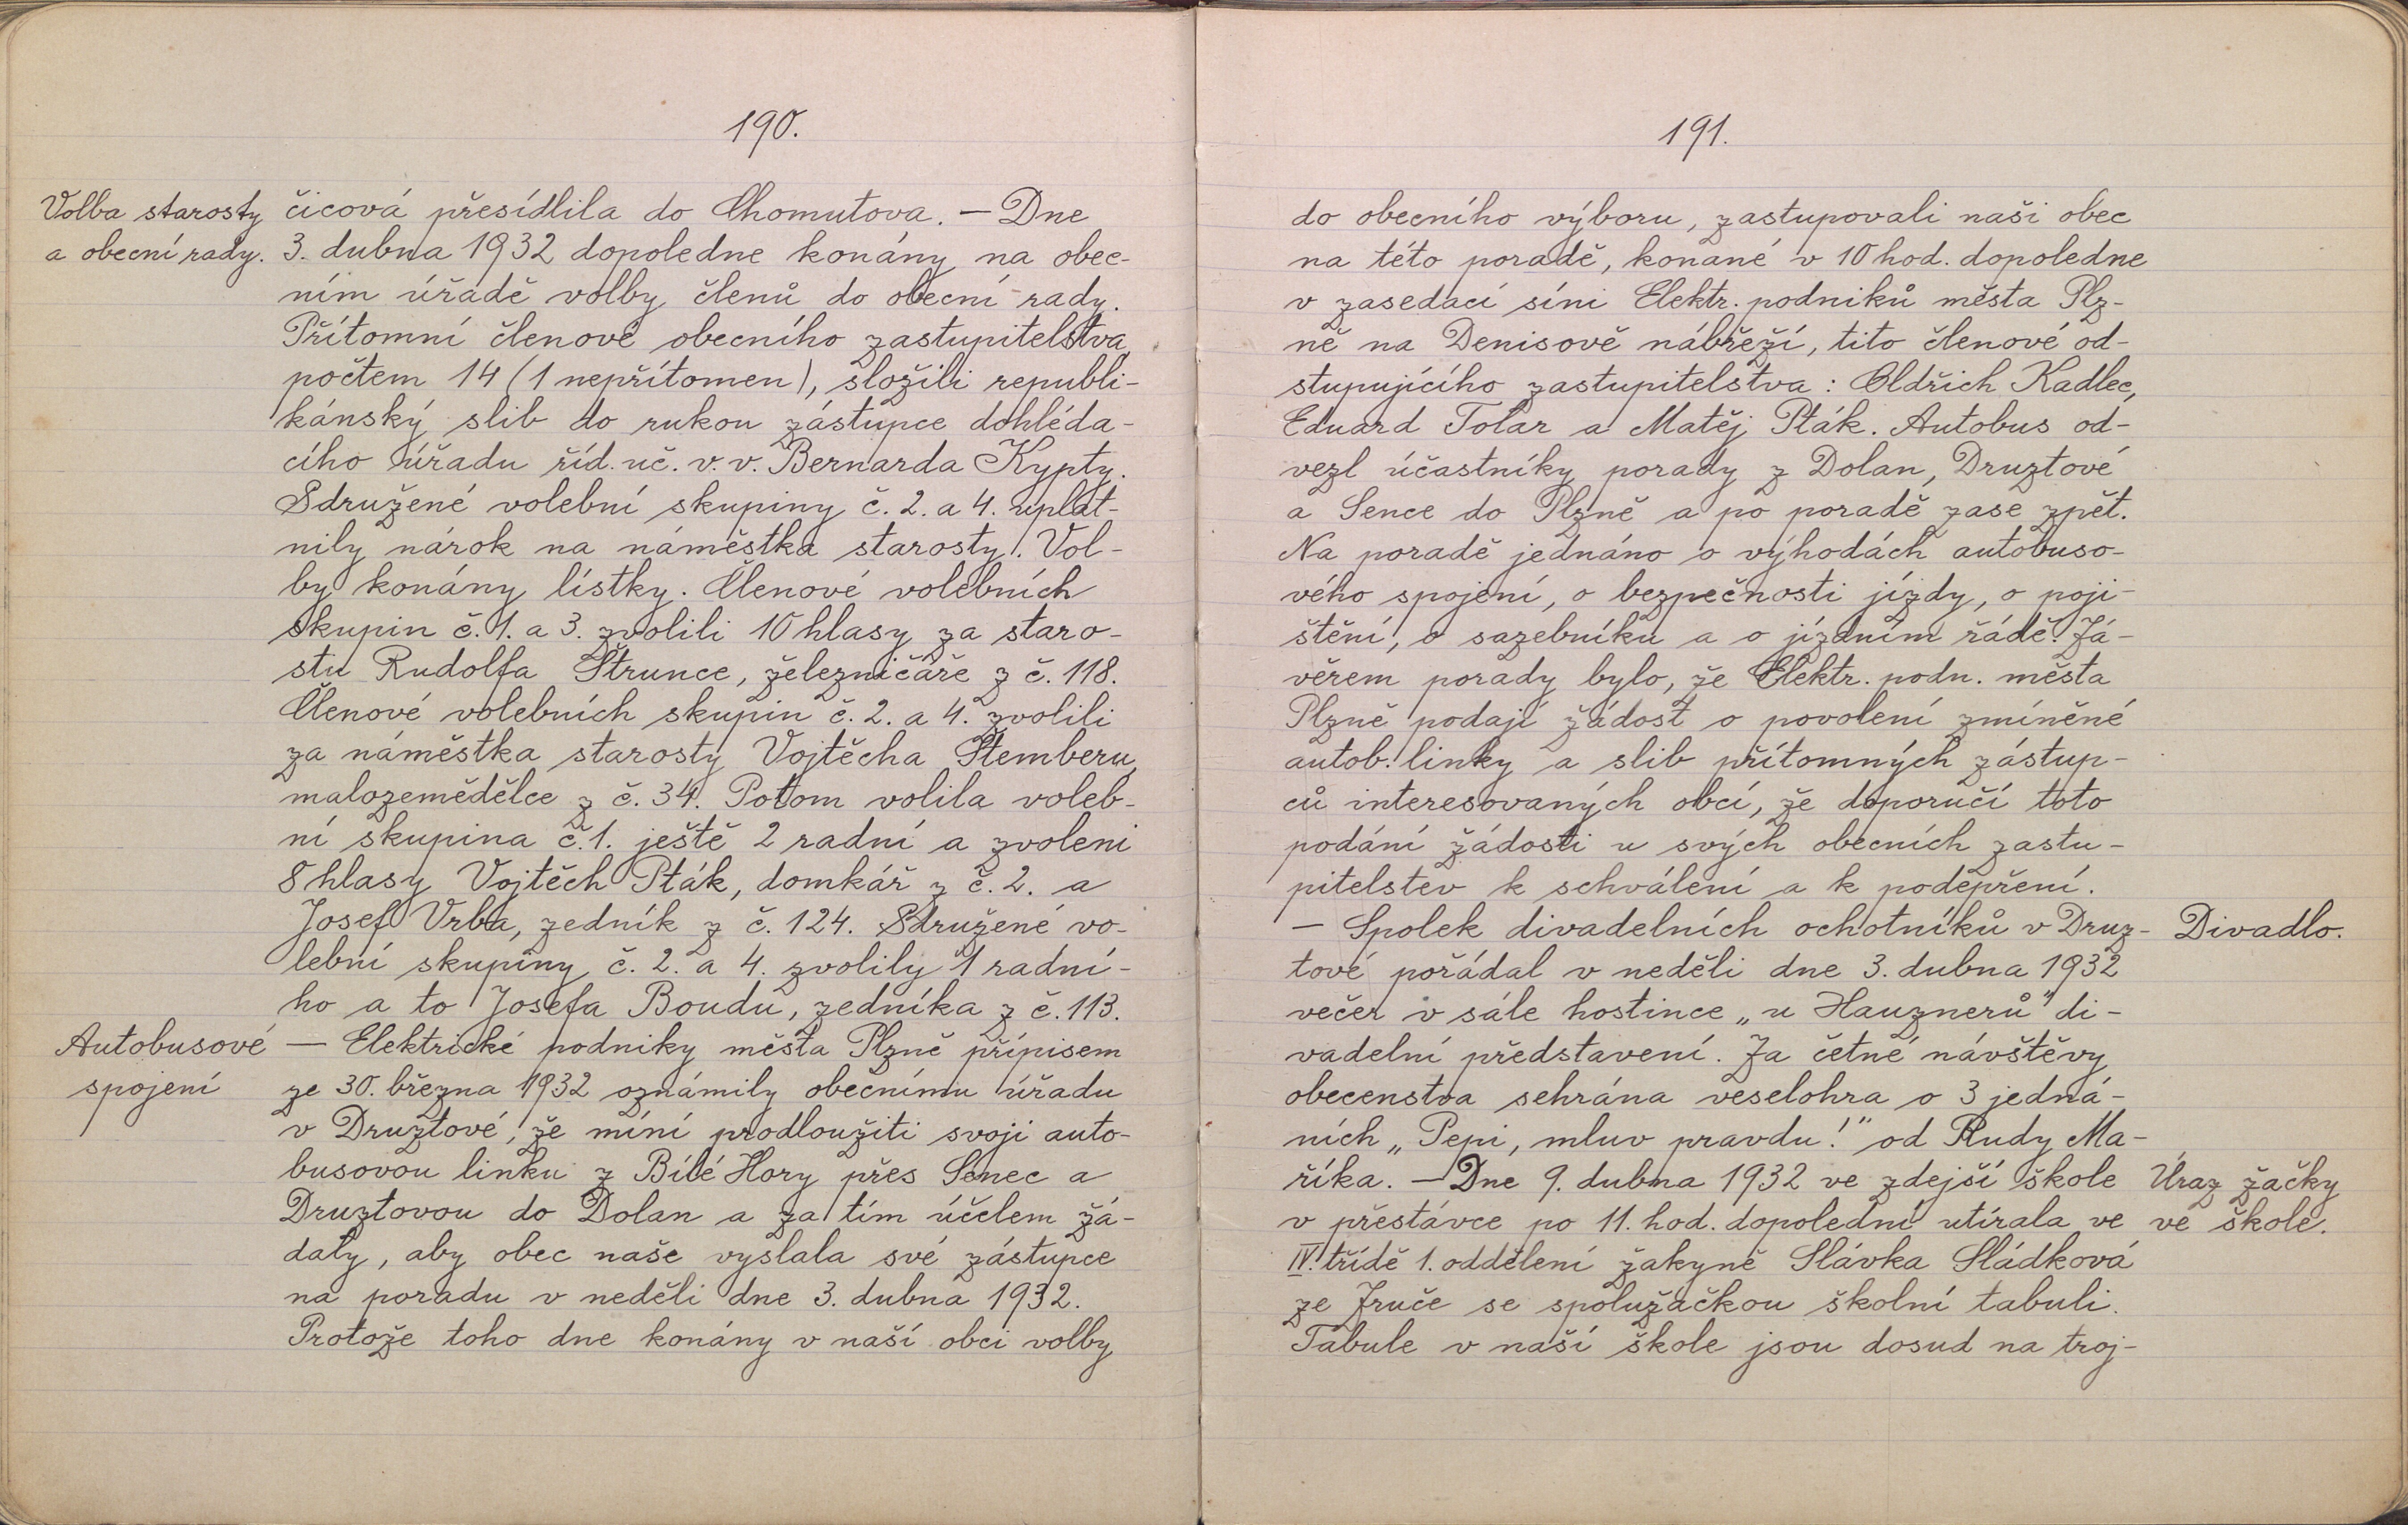 190.
Volba starosty
a obecní rady.
čicová přesídlila do Chomutova. — Dne
3. dubna 1932 dopoledne konány na obec-
ním úřadě volby členů do obecní rady.
Přítomní členové obecního zastupitelstva,
počtem 14 (1 nepřítomen), složili republi-
kánský slib do rukou zástupce dohléda-
cího úřadu říd. uč. v. v. Bernarda Kypty.
Sdružené volební skupiny č. 2. a 4. uplat-
nily nárok na náměstka starosty. Vol-
by konány lístky. Členové volebních
skupin č. 1. a 3. zvolili 10 hlasy za staro-
stu Rudolfa Štrunce, železničáře z č. 118.
Členové volebních skupin č. 2. a 4. zvolili
za náměstka starosty Vojtěcha Štemberu,
malozemědělce z č. 34. Potom volila voleb-
ní skupina č. 1. ještě 2 radní a zvoleni
8 hlasy Vojtěch Pták, domkář z č. 2. a
Josef Vrba, zedník z č. 124. Sdružené vo-
lební skupiny č. 2. a 4. zvolily 1 radní-
ho a to Josefa Boudu, zedníka z č. 113.
Autobusové
spojení
— Elektrické podniky města Plzně přípisem
ze 30. března 1932 oznámily obecnímu úřadu
v Druztové, že míní prodloužiti svoji auto-
busovou linku z Bílé Hory přes Senec a
Druztovou do Dolan a za tím účelem žá-
daly, aby obec naše vyslala své zástupce
na poradu v neděli dne 3. dubna 1932.
Protože toho dne konány v naší obci volby
191.
do obecního výboru, zastupovali naši obec
na této poradě, konané v 10 hod. dopoledne
v zasedací síni Elektr. podniků města Plz-
ně na Denisově nábřeží, tito členové od-
stupujícího zastupitelstva: Oldřich Kadlec,
Eduard Tolar a Matěj Pták. Autobus od-
vezl účastníky porady z Dolan, Druztové
a Sence do Plzně a po poradě zase zpět.
Na poradě jednáno o výhodách autobuso-
vého spojení, o bezpečnosti jízdy, o poji-
štění, o sazebníku a o jízdním řádě. Zá-
věrem porady bylo, že Elektr. podn. města
Plzně podají žádost o povolení zmíněné
autob. linky a slib přítomných zástup-
ců interesovaných obcí, že doporučí toto
podání žádosti u svých obecních zastu-
pitelstev k schválení a k podepření.
— Spolek divadelních ochotníků v Druz-
Divadlo.
tové pořádal v neděli dne 3. dubna 1932
večer v sále hostince „u Hauznerů" di-
vadelní představení. Za četné návštěvy
obecenstva sehrána veselohra o 3 jedná-
ních „Pepi, mluv pravdu!" od Rudy Ma-
říka. — Dne 9. dubna 1932 ve zdejší škole
Úraz žačky
ve škole.
v přestávce po 11. hod. dopolední utírala ve
IV. třídě 1. oddělení žakyně Slávka Sládková
ze Zruče se spolužačkou školní tabuli.
Tabule v naší škole jsou dosud na troj-